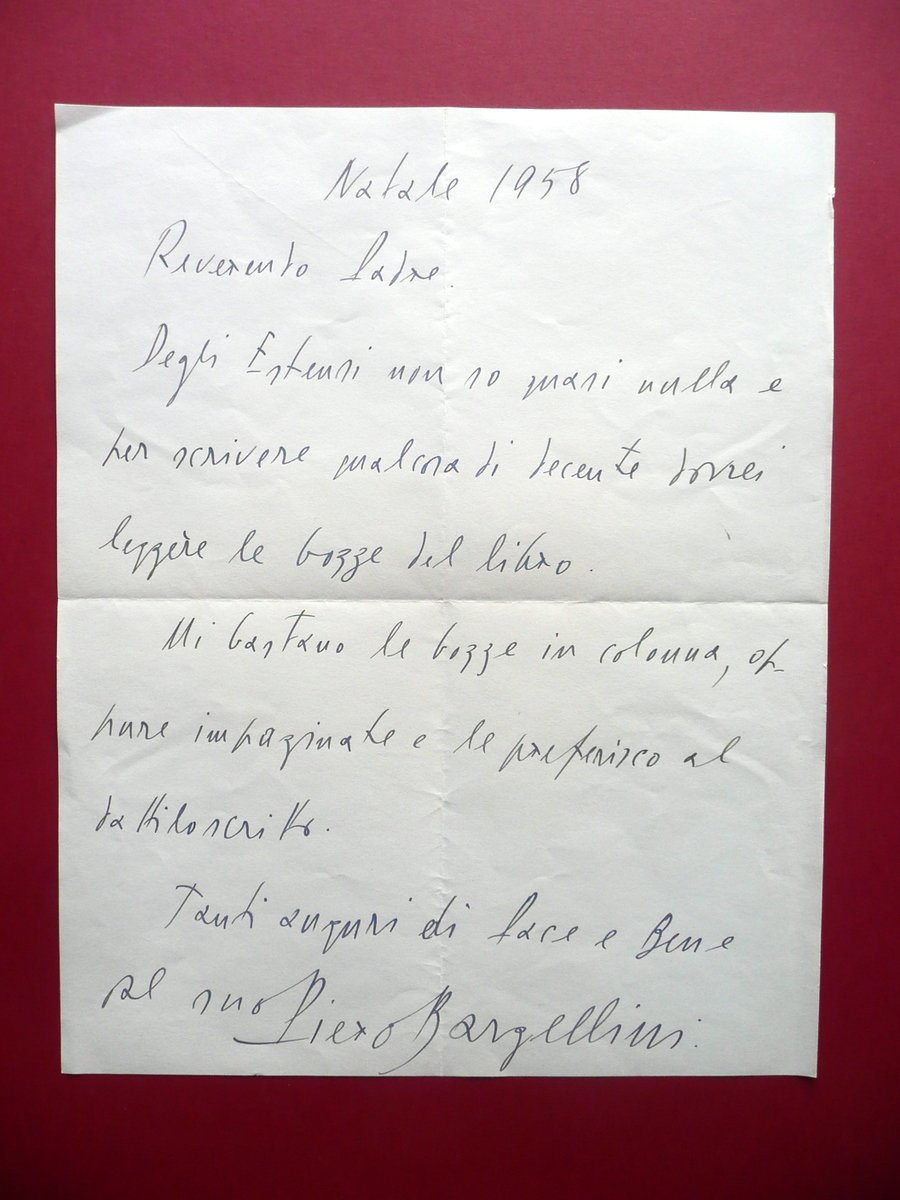 Natale 1958
Reverendo Padre.
Degli Estensi non so quasi nulla e
per scrivere qualcosa di decente dovrei
leggere le bozze del libro.
Mi bastano le bozze in colonna, op-
pure impaginate e le preferisco al
dattiloscritto.
Tanti auguri di Pace e Bene
dal suo Piero Bargellini.